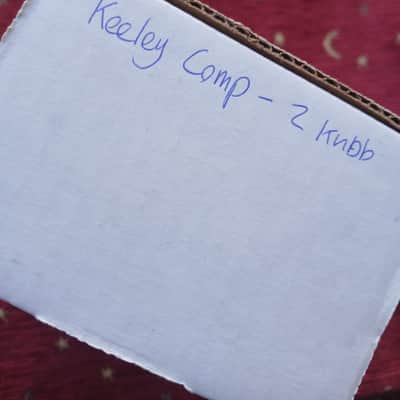 Keeley Comp - 2 Knob